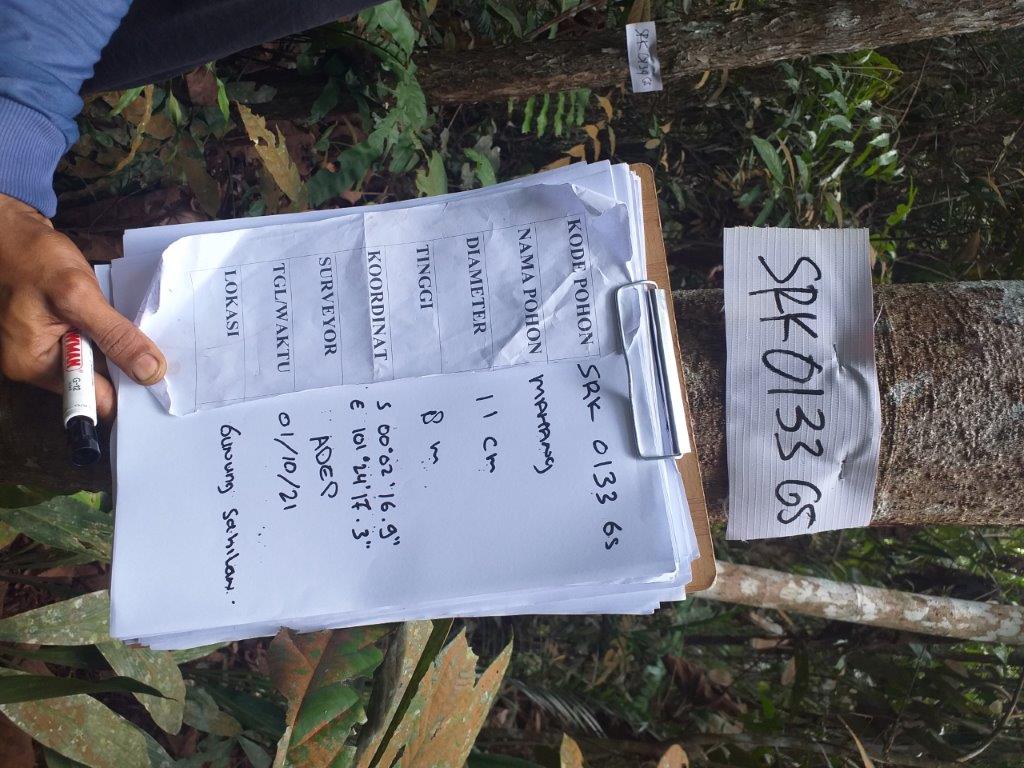 SRK 0133 GS
SRK 0134 GS
KODE POHON SRK 0133 GS
NAMA POHON MAHANG
DIAMETER 11 cm
TINGGI 8 m
KOORDINAT S 00°02'16.9"
E 101°24'17.3"
SURVEYOR ADEP
TGL/WAKTU 01/10/21
LOKASI Gunung Sahilan.
WMAN G-12